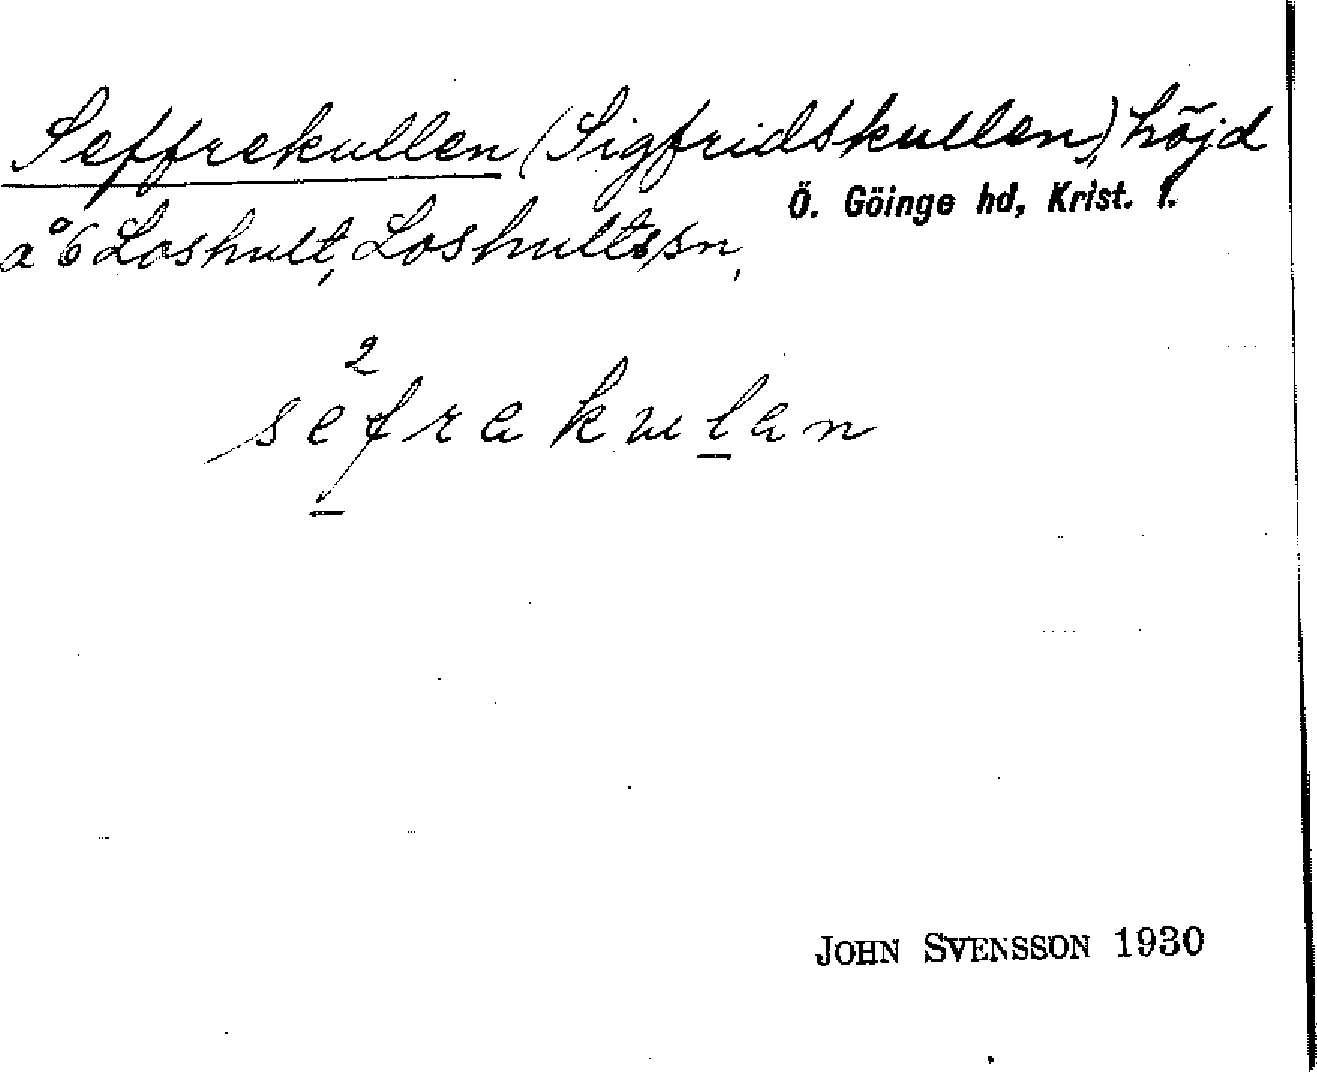 Seffrekullen (Sigfridskullen), höjd
Ö. Göinge hd, Krist. l.
å 6 Loshult, Loshults sn,
2
sefrakulan
JOHN SVENSSON 1930